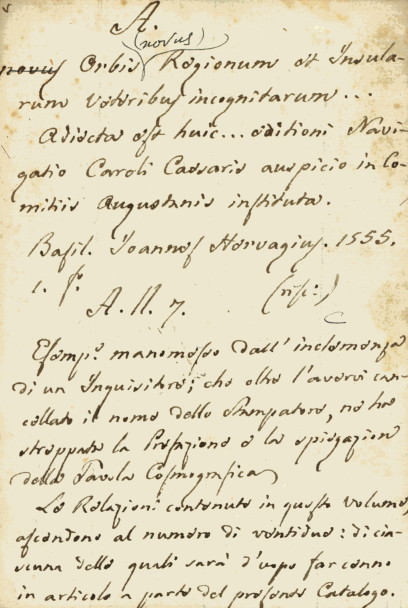 A.
(novus)
novus Orbis Regionum et Insula-
rum Veteribus incognitarum...
Adiecta est huic... editioni Navi-
gatio Caroli Caesaris auspicio in Co-
mitiis Augustanis instituta.
Basil. Joannes Hervagius. 1555.
1. fo.
A. II. 7. (ris:)
Esemp.e manomesso dall'inclemenza
di un Inquisitore; che oltre l'avervi can-
cellato il nome dello Stampatore, ne ha
strappata la Prefazione e la spiegazione
della Tavola Cosmografica.
Le Relazioni contenute in questo volume,
ascendono al numero di ventidue: di cia-
scuna delle quali sarà d'uopo far cenno
in articolo a parte del presente Catalogo.